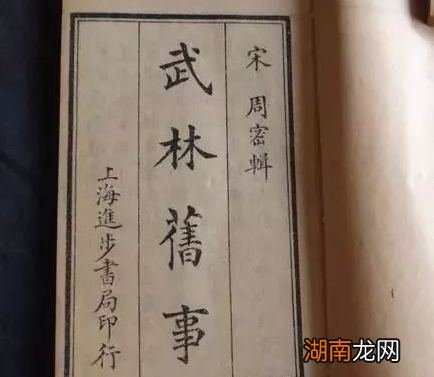 宋 周密輯
武林舊事
上海進步書局印行
湖南龙网